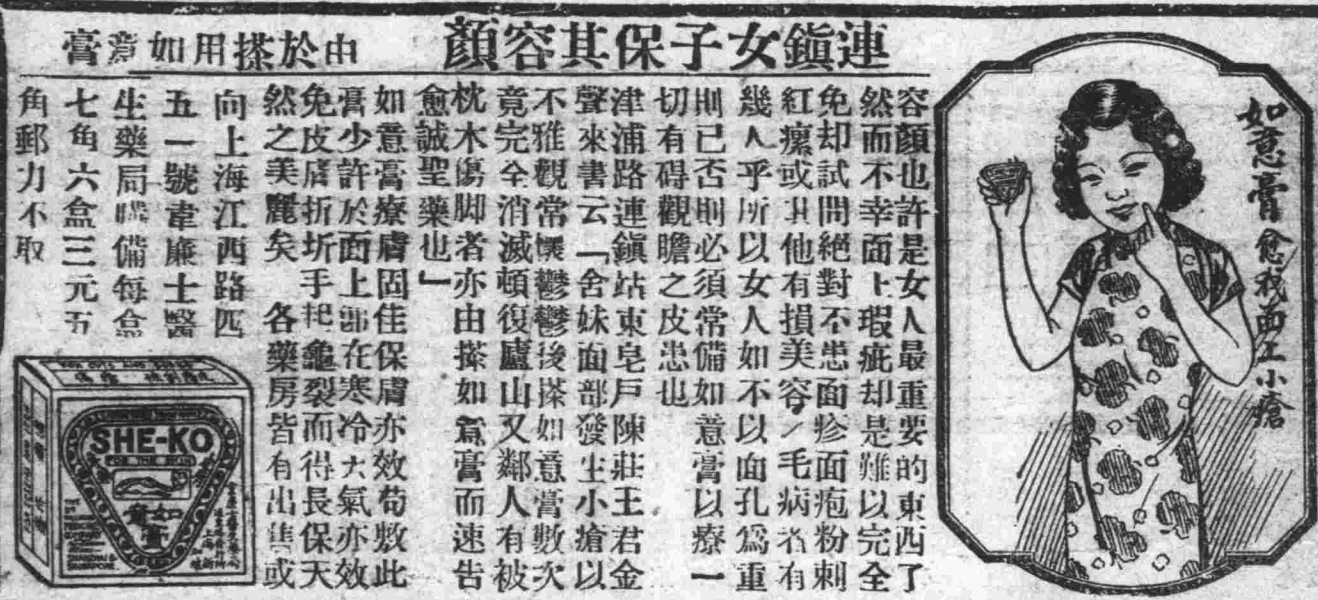 連鎮女子保其容顏
由於搽用如意膏
容顏也許是女人最重要的東西了
然而不幸面上瑕疵却是難以完全
免却試問絕對不患面疹面疱粉刺
紅瘰或其他有損美容之毛病者有
幾人乎所以女人如不以面孔爲重
則已否則必須常備如意膏以療一
切有碍觀瞻之皮患也
津浦路連鎮站東皂戶陳莊王君金
聲來書云「舍妹面部發生小瘡以
不雅觀常懷鬱鬱後搽如意膏數次
竟完全消滅頓復廬山又鄰人有被
枕木傷脚者亦由搽如意膏而速告
愈誠聖藥也」
如意膏療膚固佳保膚亦效苟敷此
膏少許於面上即在寒冷大氣亦效
免皮膚折坼手起龜裂而得長保天
然之美麗矣 各藥房皆有出售或
向上海江西路四
五一號韋廉士醫
生藥局購備每盒
七角六盒三元五
角郵力不取
如意膏愈我面上小瘡
SHE-KO
FOR THE SKIN
如意膏